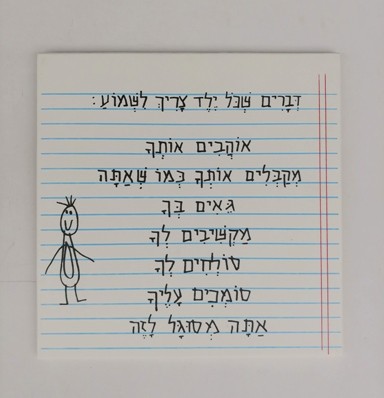 דְּבָרִים שֶׁכֹּל יֶלֶד צָרִיךְ לִשְׁמוֹעַ:
אוֹהֲבִים אוֹתְךָ
מְקַבְּלִים אוֹתְךָ כְּמוֹ שֶׁאַתָּה
גֵּאִים בְּךָ
מַקְשִׁיבִים לְךָ
סוֹלְחִים לְךָ
סוֹמְכִים עָלֶיךָ
אַתָּה מְסוּגָּל לָזֶה